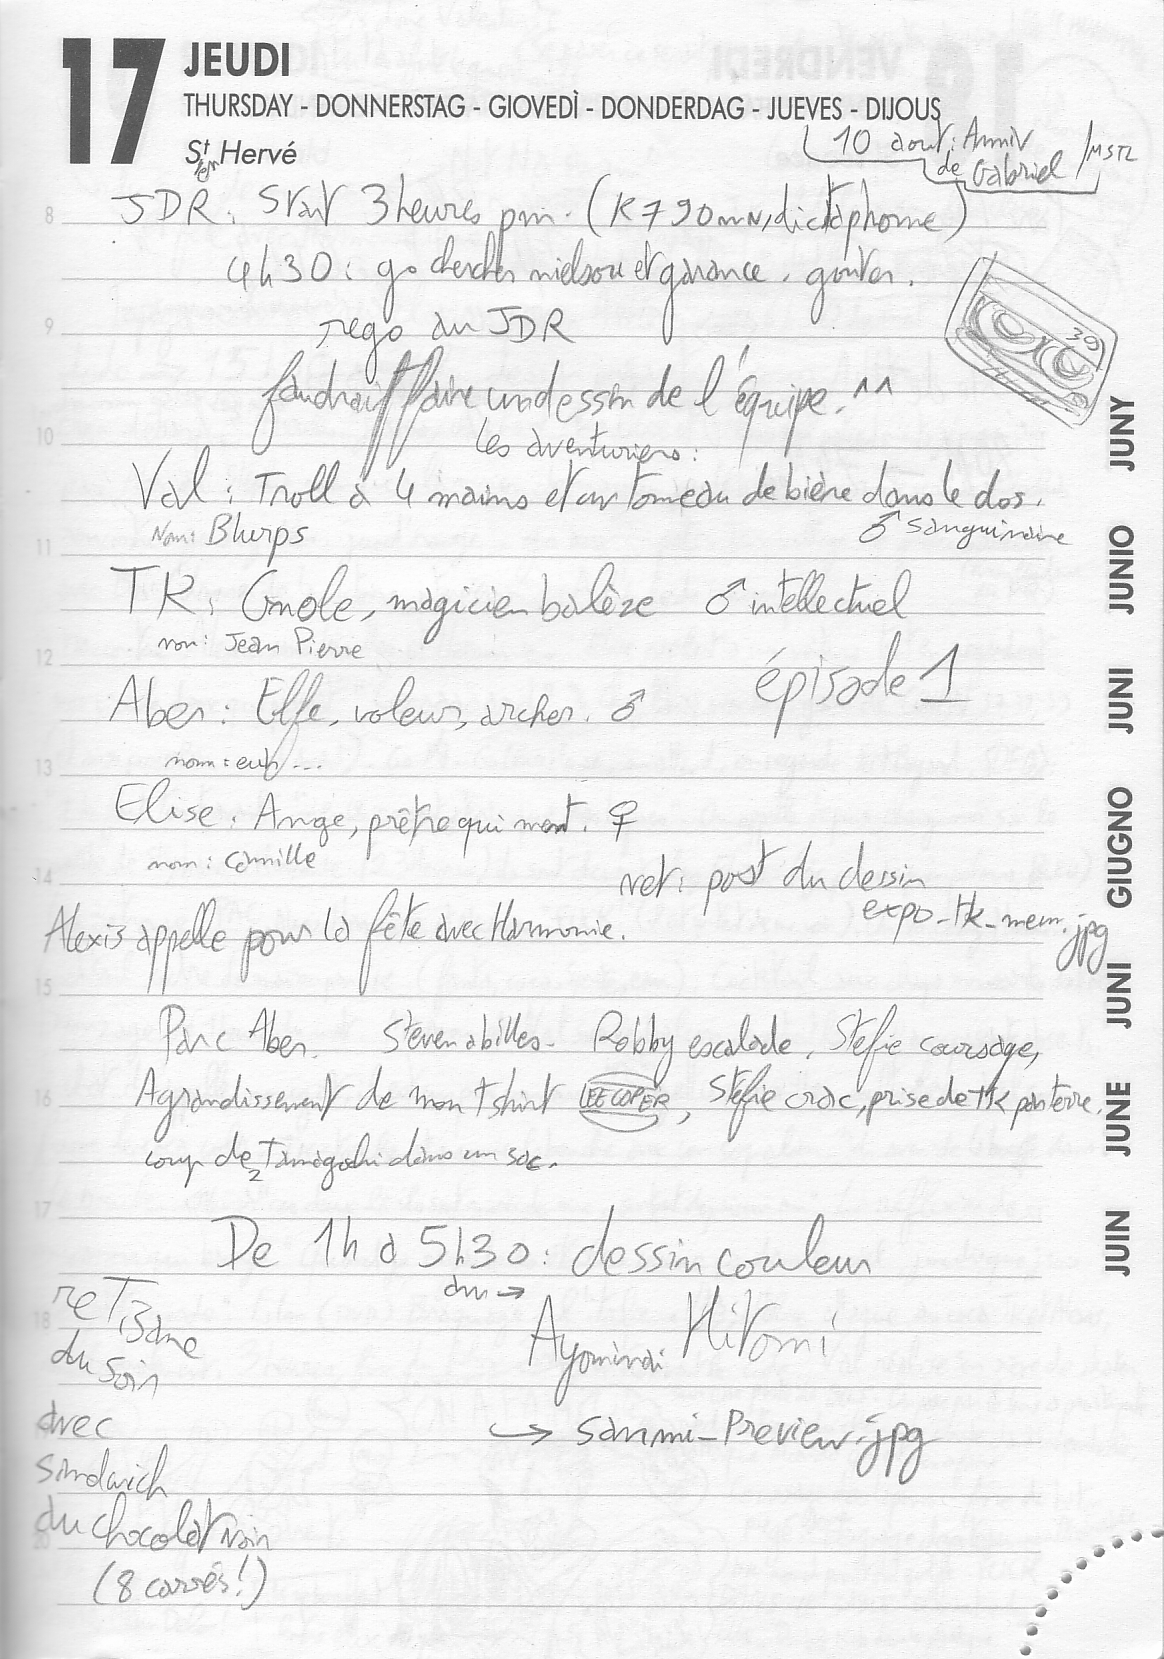 17 JEUDI
THURSDAY - DONNERSTAG - GIOVEDÌ - DONDERDAG - JUEVES - DIJOUS
St Hervé
10 aout : Anniv
de Gabriel / MSTL
JDR : Start 3 heures pm. (K790mN, dictaphone)
8
4h30 : go chercher nielson et garance. goûter.
9
rego au JDR
faudrait faire un dessin de l'équipe. ^^
10
Les aventuriers :
Val : Troll à 4 mains et un tonneau de bière dans le dos.
Nom : Blurps ♂ sanguinaire
11
TK : Gnole, magicien balèze ♂ intellectuel
nom : Jean Pierre
12
épisode 1
Aber : Elfe, voleur, archer. ♂
nom : euh ...
13
Elise : Ange, prêtre qui ment. ♀
nom : Camille
14
net : post du dessin
expo-tk-mem.jpg
Alexis appelle pour la fête avec Harmonie.
15
Parc Aber. Steven abilles. Robby escalade, Stefie coursage,
Agrandissement de mon t shirt LEE COPER, Stefie crac, prise de TK par terre.
16
coup de 2 Tamagoshi dans un sac.
17
De 1h à 5h30 : dessin couleur
du →
Hitomi
→ sanmi-Preview.jpg
reTisane
18
du soir
avec
sandwich
du chocolat noir
20
(8 carrés !)
39
JUIN JUNE JUNI GIUGNO JUNI JUNIO JUNY